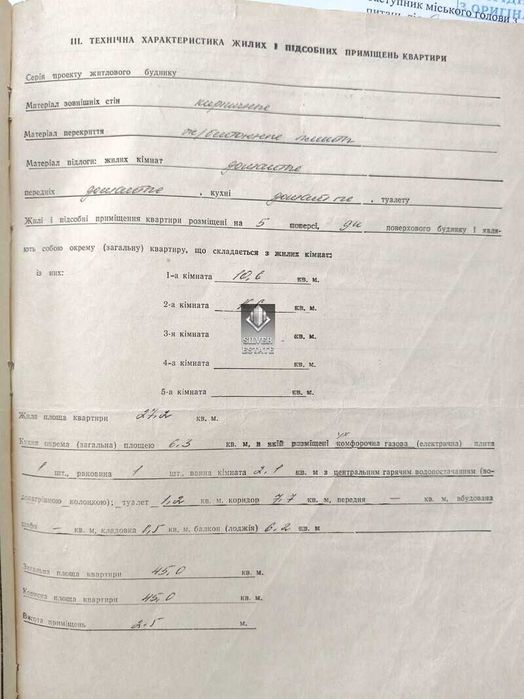 аступник міського голови з
З ОРИГІНА
III. ТЕХНІЧНА ХАРАКТЕРИСТИКА ЖИЛИХ І ПІДСОБНИХ ПРИМІЩЕНЬ КВАРТИРИ
Серія проекту житлового будинку
Матеріал зовнішніх стін
Матеріал перекриття
Матеріал підлоги: жилих кімнат дощате
передніх дощате , кухні , туалету
Жилі і підсобні приміщення квартири розміщені на 5 поверсі, поверхового будинку і явля-
ють собою окрему (загальну) квартиру, що складається з жилих кімнат:
із них: 1-а кімната 10,6 кв. м.
2-а кімната кв. м.
3-я кімната кв. м.
SILVER
ESTATE
4-а кімната кв. м.
5-а кімната кв. м.
Жила площа квартири 27,2 кв. м.
Кухня окрема (загальна) площею 6,3 кв. м, в якій розміщені комфорочна газова (електрична) плита
1 шт., раковина 1 шт. ванна кімната 2,1 кв. м з центральним гарячим водопостачанням (во-
допідігрівною колонкою); туалет 1,2 кв. м. коридор 7,7 кв. м, передня — кв. м, вбудована
шафа — кв. м, кладовка 0,5 кв. м, балкон (лоджія) 6,2 кв. м
Загальна площа квартири 45,0 кв. м.
Корисна площа квартири 45,0 кв. м.
Висота приміщень 2,5 м.